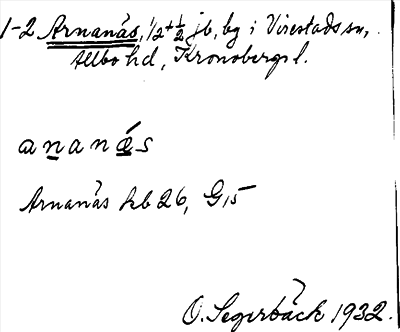 1-2 Arnanäs, 1/2 + 1/2 jb, by i Virestads sn,
Allbo hd, Kronobergs l.
ananǽs
Arnanäs kb 26, G15
O. Segerbäck 1932.